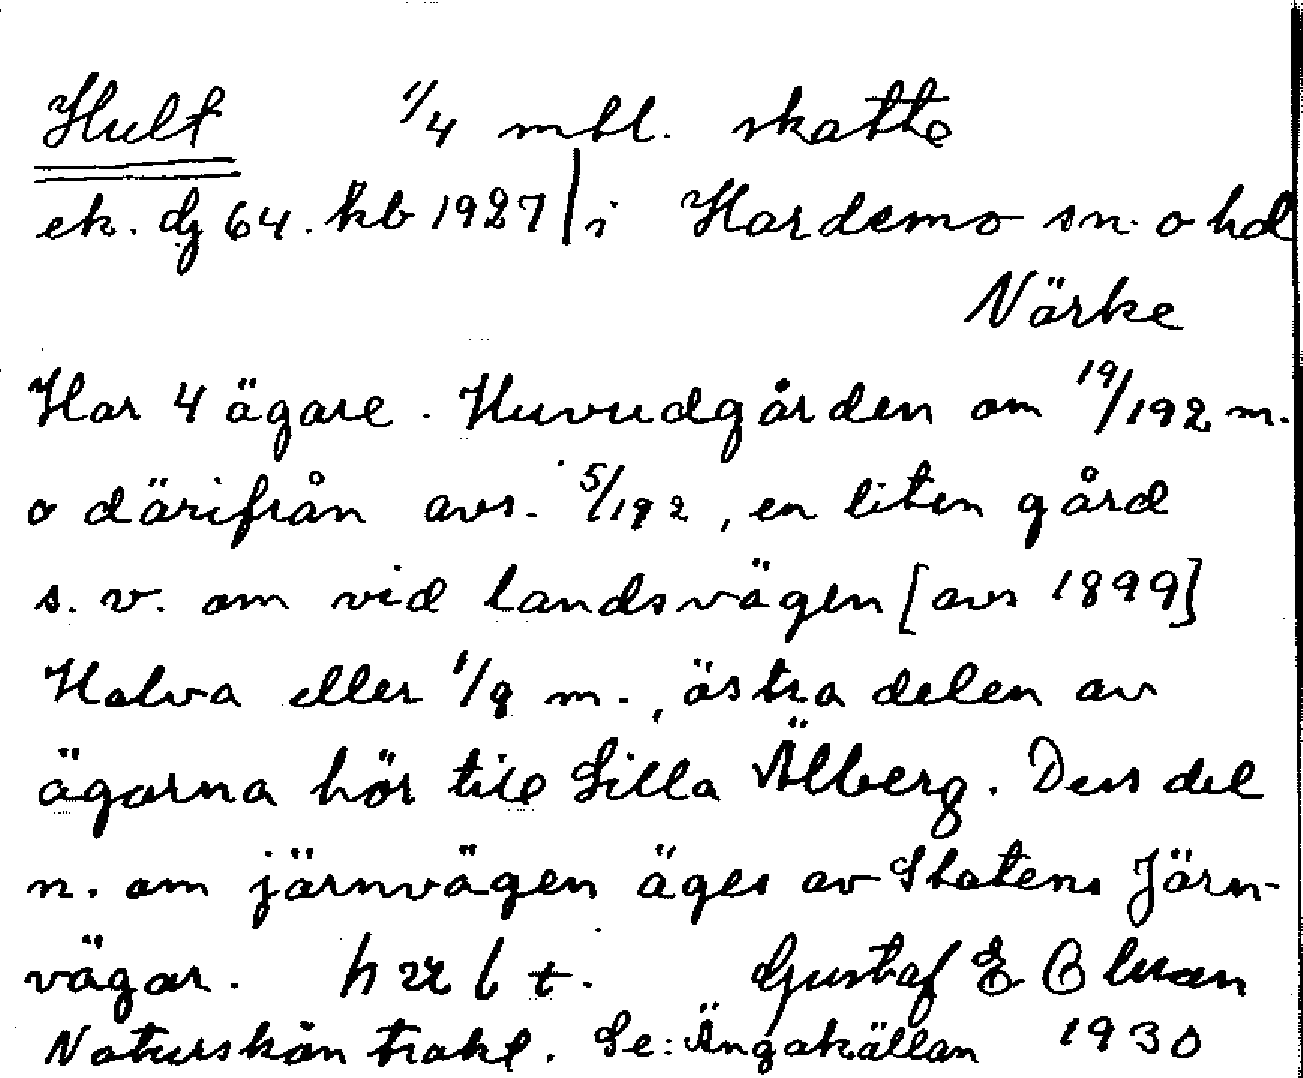 Hult 1/4 mtl. skatte
ek. dg 64. hb 1927 | i Hardemo sn. o hd
Närke
Har 4 ägare. Huvudgården om 19/192 m.
o därifrån avs. 5/192, en liten gård
s. v. om vid landsvägen [avs 1899]
Halva eller 1/8 m., östra delen av
ägorna hör till Lilla Älberg. Den del
n. om järnvägen äges av Statens Järn-
vägar. Gustaf E
Naturskön trakt. Se: Ängakällan 1930